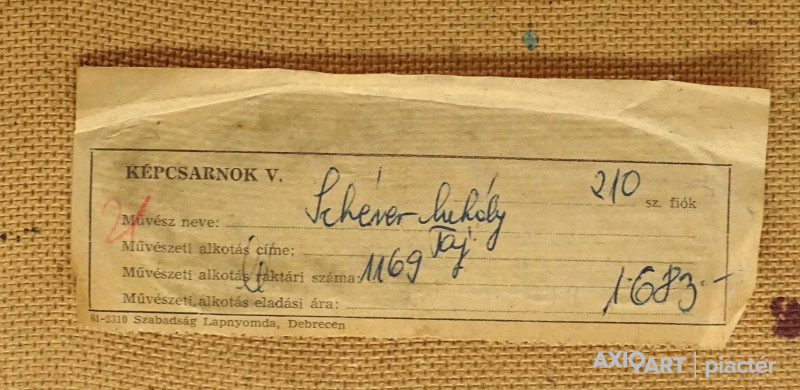 KÉPCSARNOK V. 210 sz. fiók
21
Művész neve: Schéner Mihály
Művészeti alkotás címe: Táj.
Művészeti alkotás raktári száma: 1169
Művészeti alkotás eladási ára: 1.683.-
61-2310 Szabadság Lapnyomda, Debrecen
AXIOART | piactér